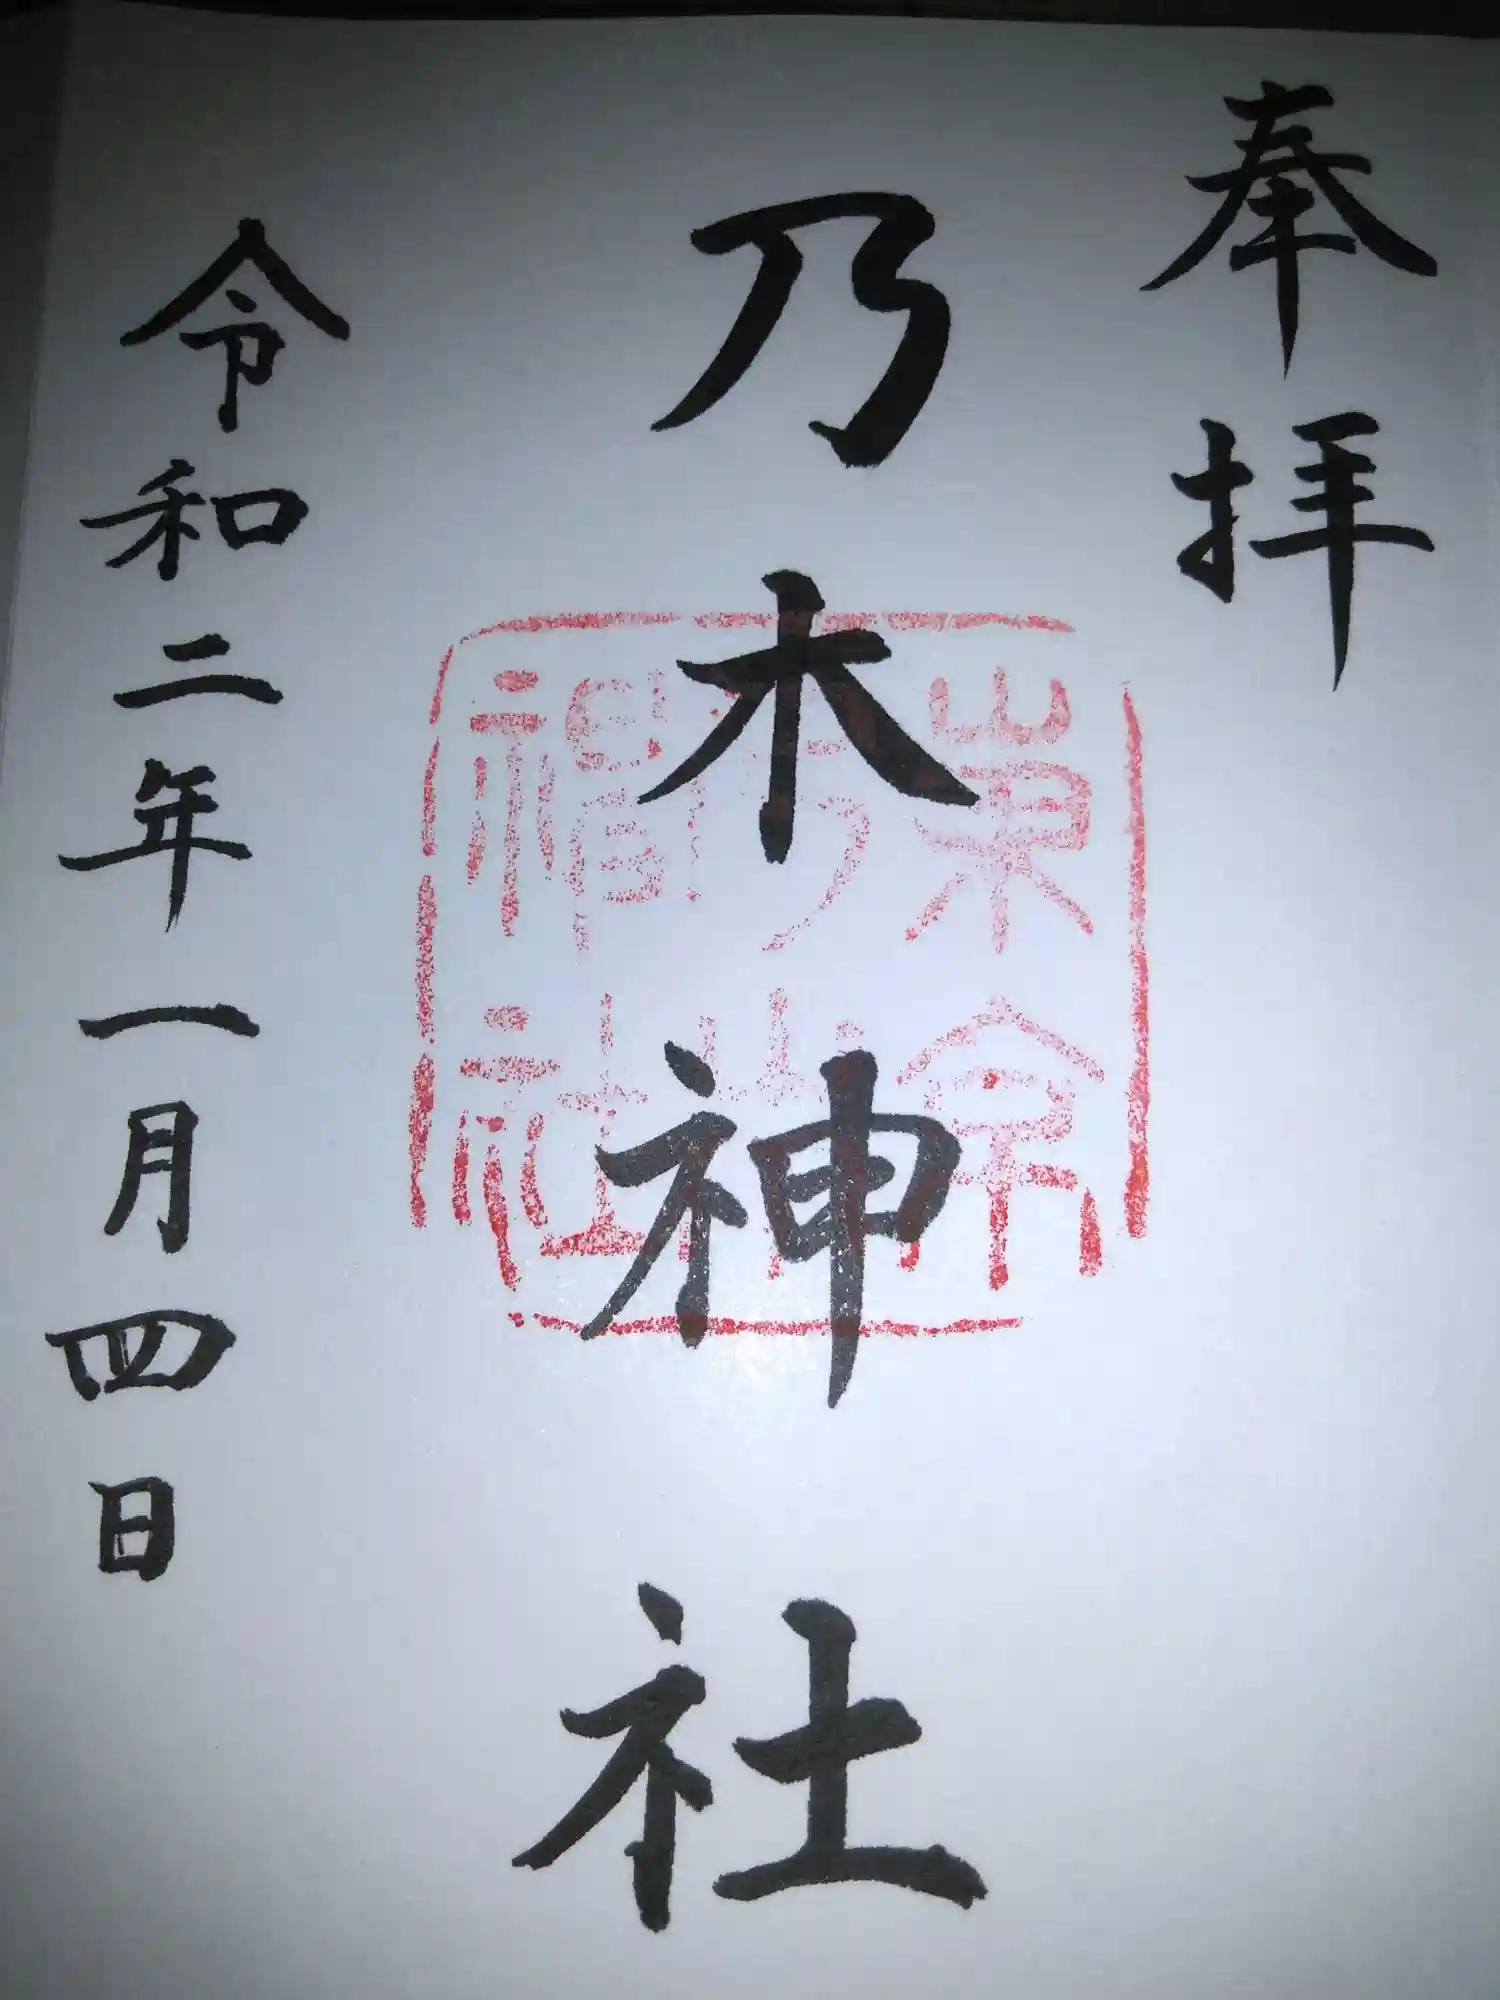 奉拝
乃木神社
令和二年一月四日